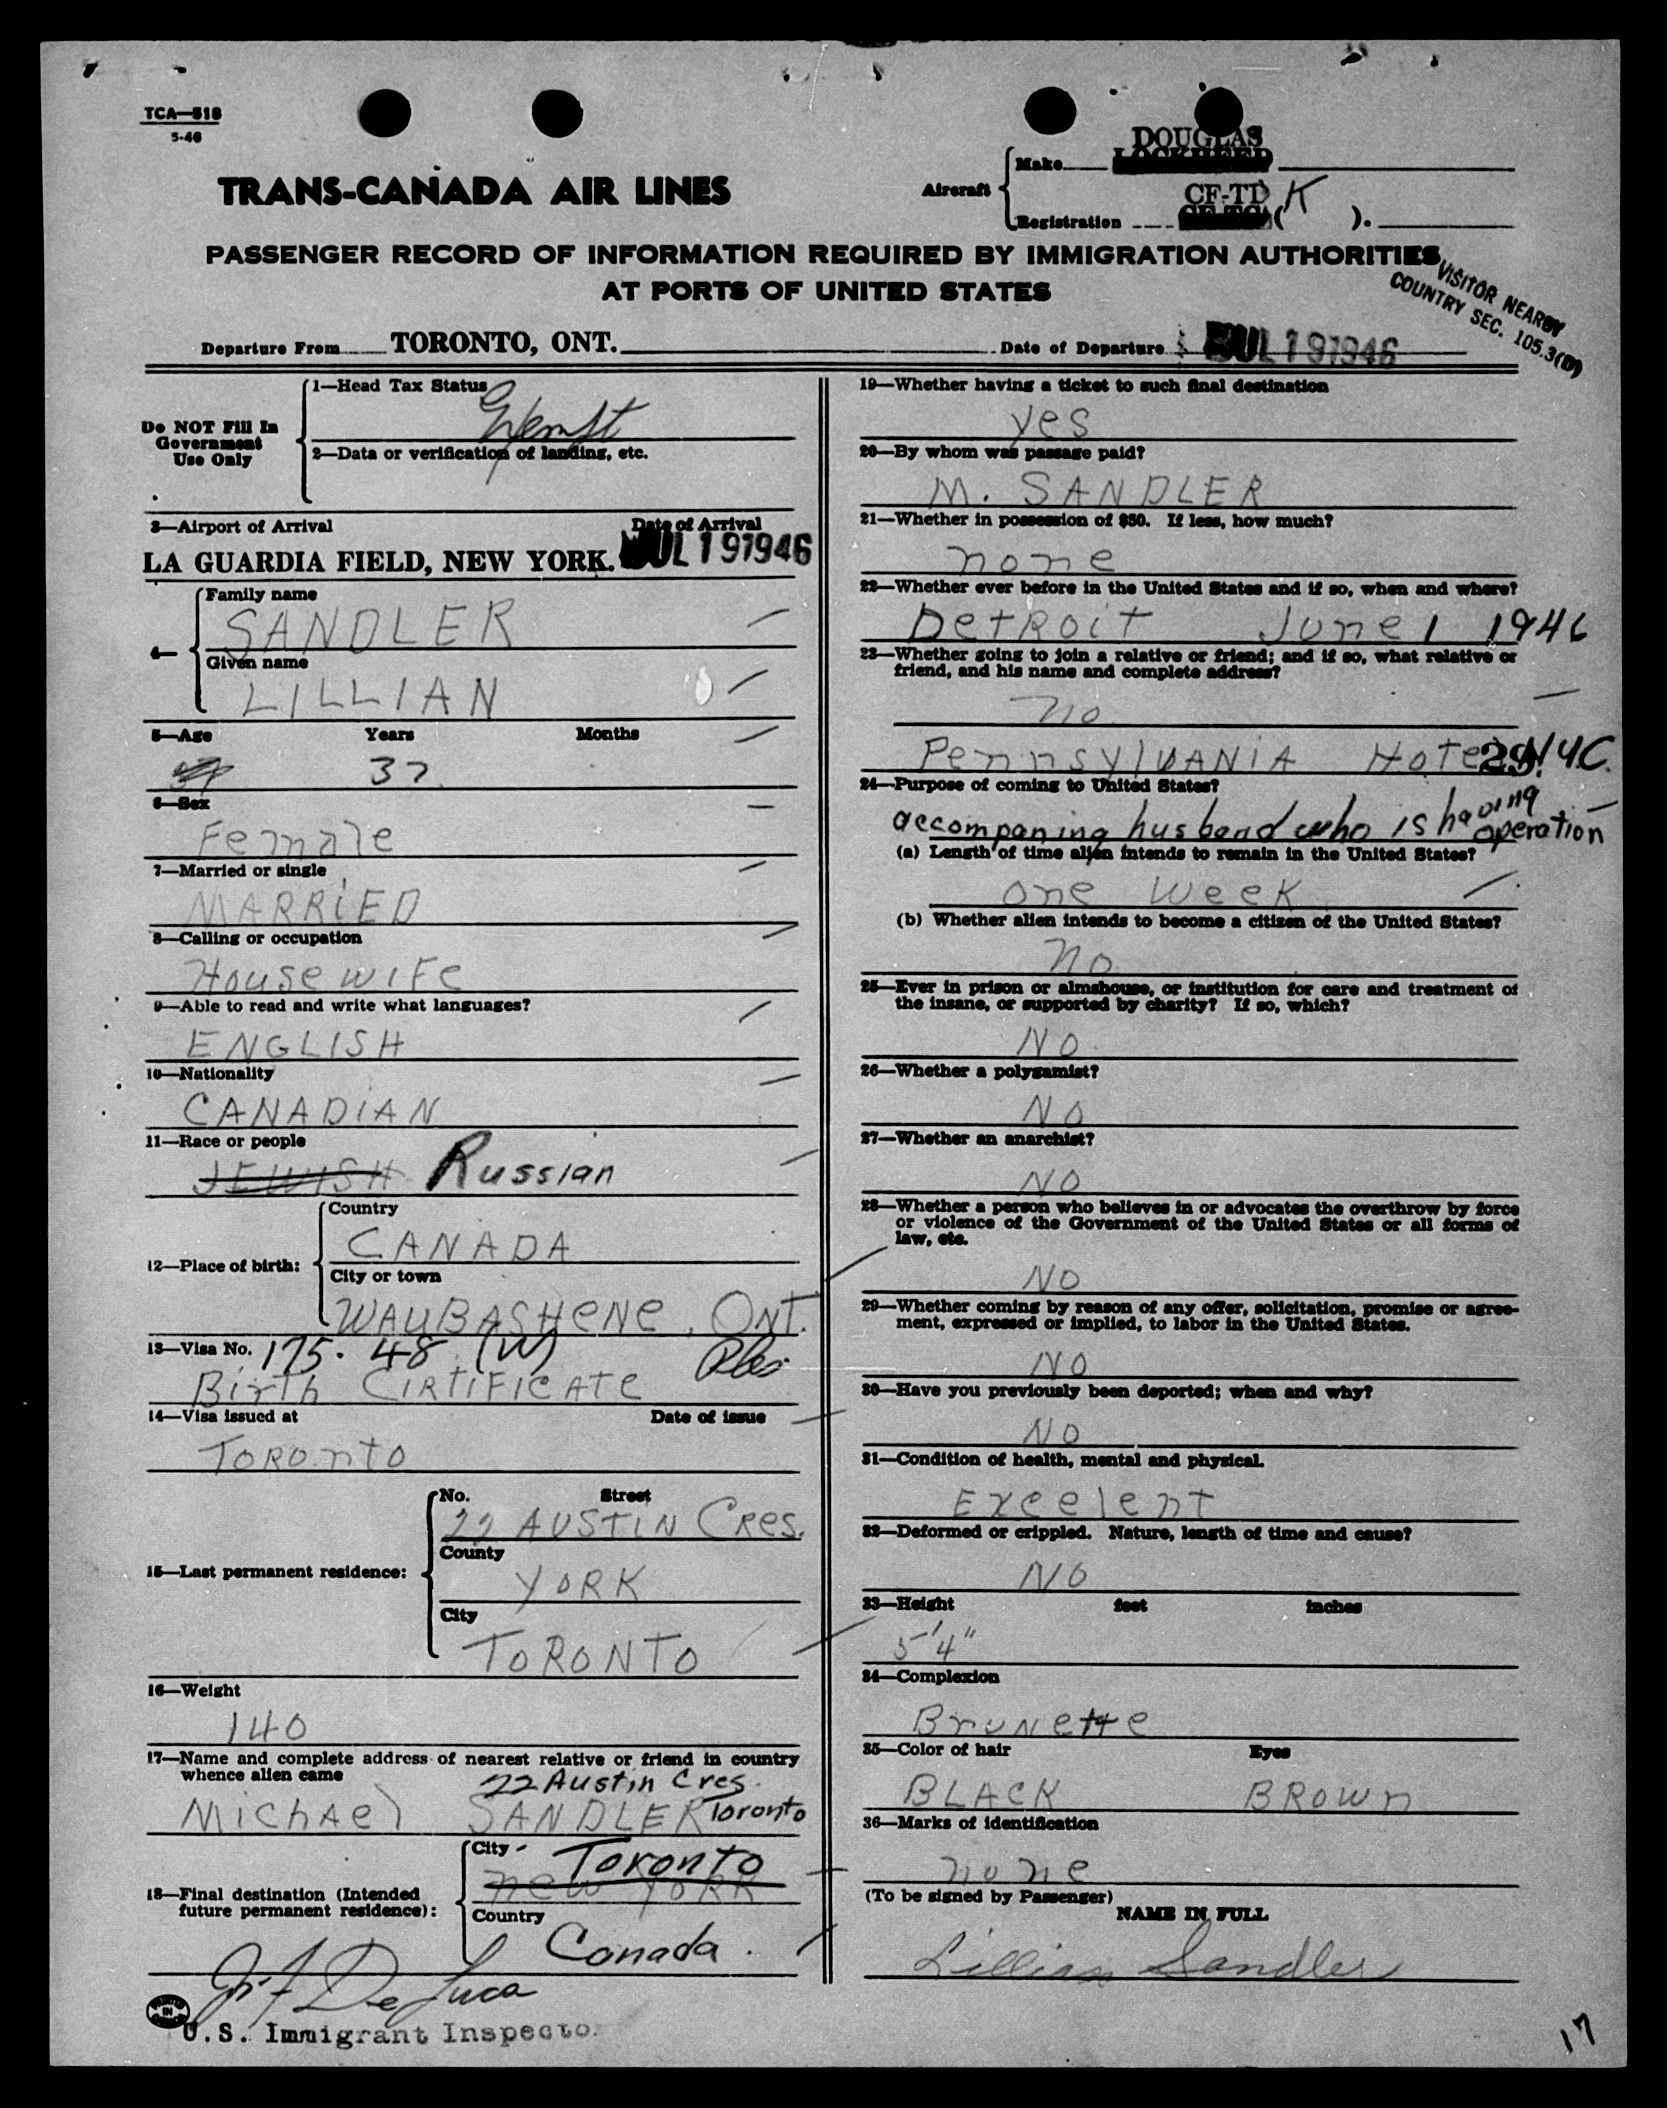 TCA—518
5-46
TRANS-CANADA AIR LINES
Aircraft
Make DOUGLAS
LOCKHEED
Registration CF-TD
CF-TC ( K ).
PASSENGER RECORD OF INFORMATION REQUIRED BY IMMIGRATION AUTHORITIES
AT PORTS OF UNITED STATES
VISITOR NEARBY
COUNTRY SEC. 105.3(D)
Departure From TORONTO, ONT. Date of Departure JUL 19 1946
Do NOT Fill In
Government
Use Only
1—Head Tax Status
Exempt
2—Data or verification of landing, etc.
3—Airport of Arrival Date of Arrival
LA GUARDIA FIELD, NEW YORK. JUL 19 1946
4—
Family name
SANDLER
Given name
LILLIAN
5—Age Years Months
37
6—Sex
Female
7—Married or single
MARRIED
8—Calling or occupation
HousewiFe
9—Able to read and write what languages?
ENGLISH
10—Nationality
CANADIAN
11—Race or people
JEWISH Russian
12—Place of birth:
Country
CANADA
City or town
WAUBASHENE, ONT.
13—Visa No. 175.48 (W)
Birth CIRTIFICATE
14—Visa issued at Date of issue
TORONTO
15—Last permanent residence:
No. Street
22 AUSTIN CRES.
County
YORK
City
TORONTO
16—Weight
140
17—Name and complete address of nearest relative or friend in country
whence alien came
22 Austin Cres.
MichAel SANDLER Toronto
18—Final destination (Intended
future permanent residence):
City Toronto
new YORK
Country
Canada.
De Luca
U.S. Immigrant Inspector
19—Whether having a ticket to such final destination
yes
20—By whom was passage paid?
M. SANDLER
21—Whether in possession of $50. If less, how much?
none
22—Whether ever before in the United States and if so, when and where?
DeTRoiT June 1 1946
23—Whether going to join a relative or friend; and if so, what relative or
friend, and his name and complete address?
no
PennsylVANIA HoTel NYC.
24—Purpose of coming to United States?
accompaning husband who is having operation
(a) Length of time alien intends to remain in the United States?
one week
(b) Whether alien intends to become a citizen of the United States?
no
25—Ever in prison or almshouse, or institution for care and treatment of
the insane, or supported by charity? If so, which?
NO
26—Whether a polygamist?
NO
27—Whether an anarchist?
NO
28—Whether a person who believes in or advocates the overthrow by force
or violence of the Government of the United States or all forms of
law, etc.
NO
29—Whether coming by reason of any offer, solicitation, promise or agree-
ment, expressed or implied, to labor in the United States.
NO
30—Have you previously been deported; when and why?
NO
31—Condition of health, mental and physical.
Excelent
32—Deformed or crippled. Nature, length of time and cause?
NO
33—Height feet inches
5'4"
34—Complexion
Brunette
35—Color of hair Eyes
BLACK BROWN
36—Marks of identification
none
(To be signed by Passenger)
NAME IN FULL
Lillian Sandler
17